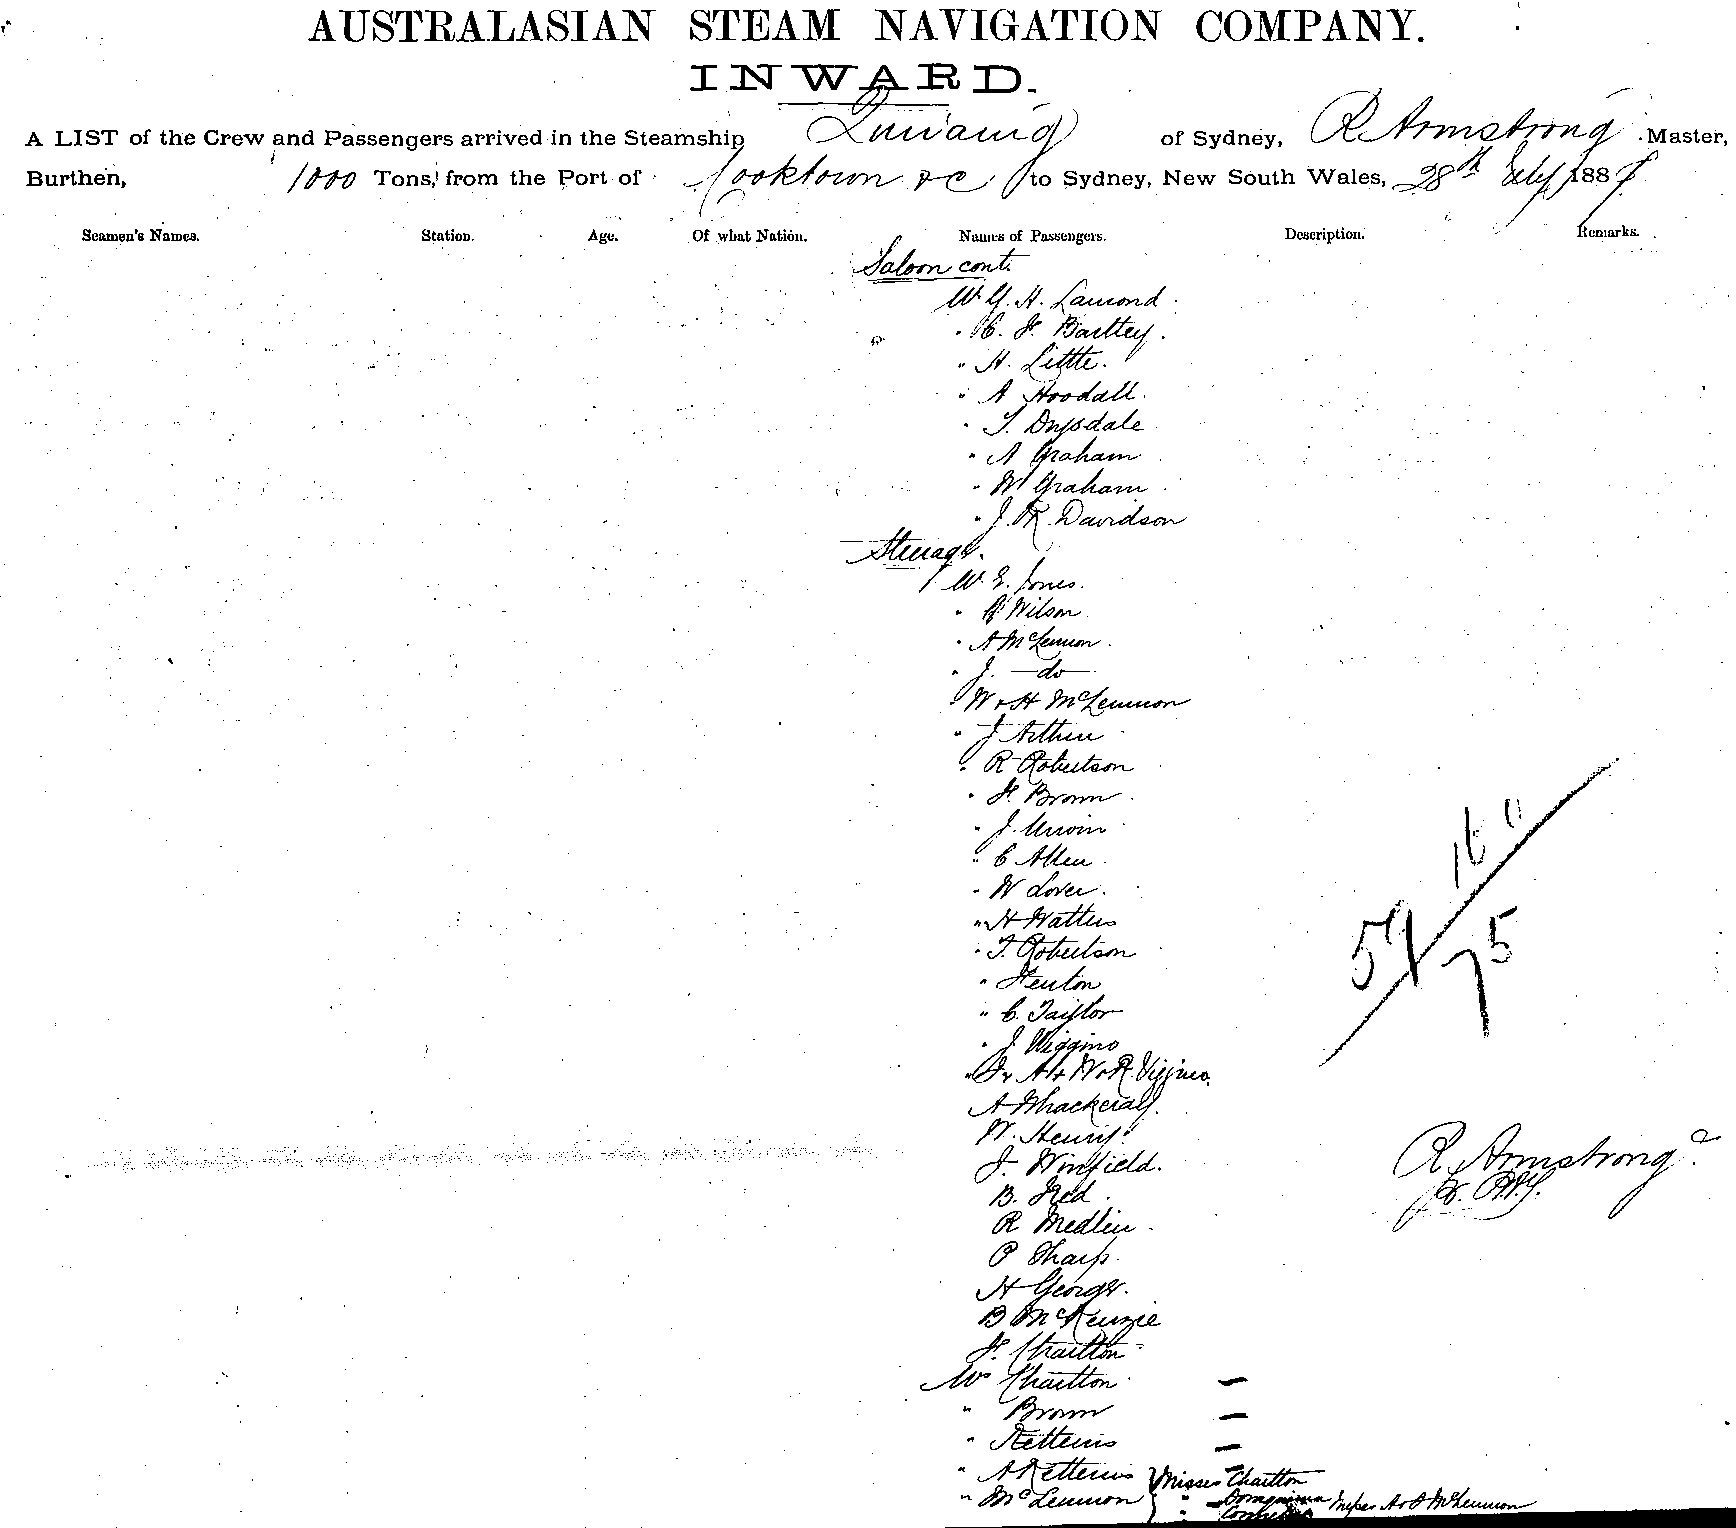 AUSTRALASIAN STEAM NAVIGATION COMPANY.
INWARD.
A LIST of the Crew and Passengers arrived in the Steamship of Sydney, R Armstrong Master,
Burthen, 1000 Tons, from the Port of Cooktown &c to Sydney, New South Wales, 28th July 1887
Seamen's Names. Station. Age. Of what Nation. Names of Passengers. Description. Remarks.
Saloon cont.
H. Lamond
" Bartley.
" H. Little.
" A Woodall.
" T. Drysdale
" A Graham
" W Graham
" J. R. Davidson
Steerage.
W. E. Jones.
" Wilson
" A McLennon.
" J. do
" W & H McLennon
" J Arthur
" R Robertson
" F. Brown
" J. Unwin
" C Allen
" W Lover.
" H Watters
" T. Robertson
" Fenton
" C. Taylor
" J Wiggins
A Whackeray.
W. Henry.
J. Winfield.
B. Red
R Medlin
P Sharp.
H George.
B McKenzie
F. Charlton
Charlton
" Brown
"
" A
" McLennon
Misses Charlton
A & O McLennon
16
59
75
R. Armstrong